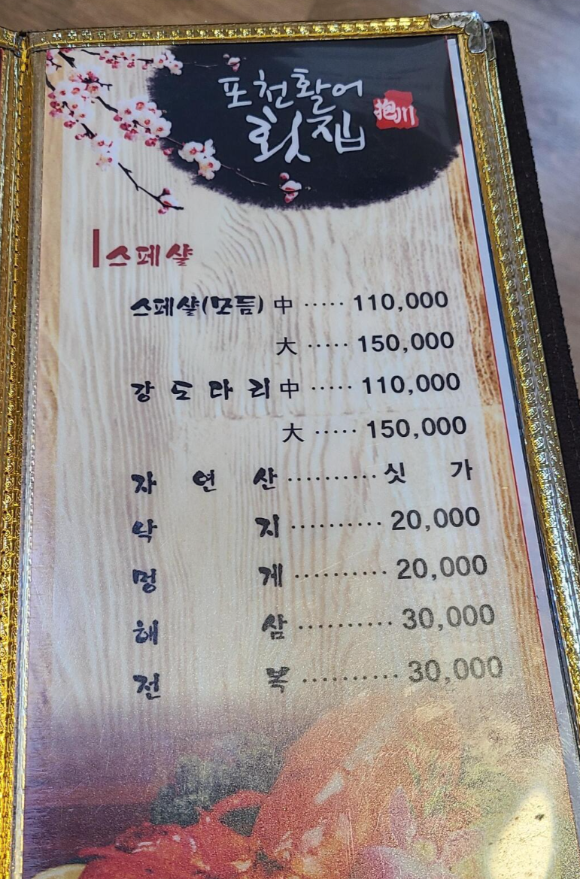 포천활어
횟집
抱川
스페샬
스페샬(모듬) 中 ····· 110,000
大 ····· 150,000
강 도 다 리 中 ····· 110,000
大 ····· 150,000
자 연 산 ·········· 싯 가
낙 지 ·········· 20,000
멍 게 ·········· 20,000
해 삼 ·········· 30,000
전 복 ·········· 30,000